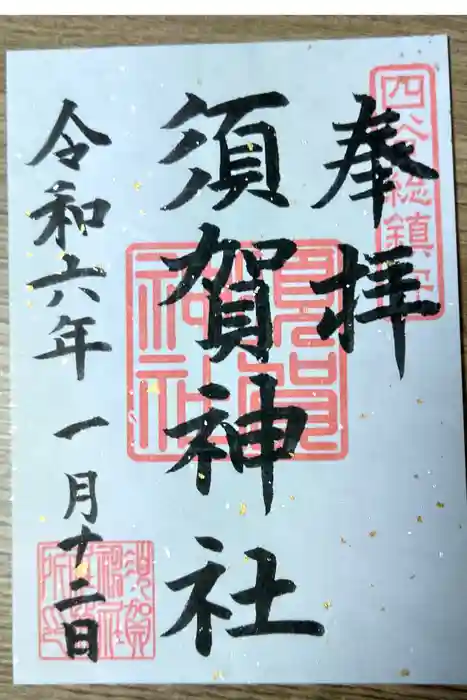 奉拝
四谷総鎮守
須賀神社
須賀神社
令和六年一月十二日